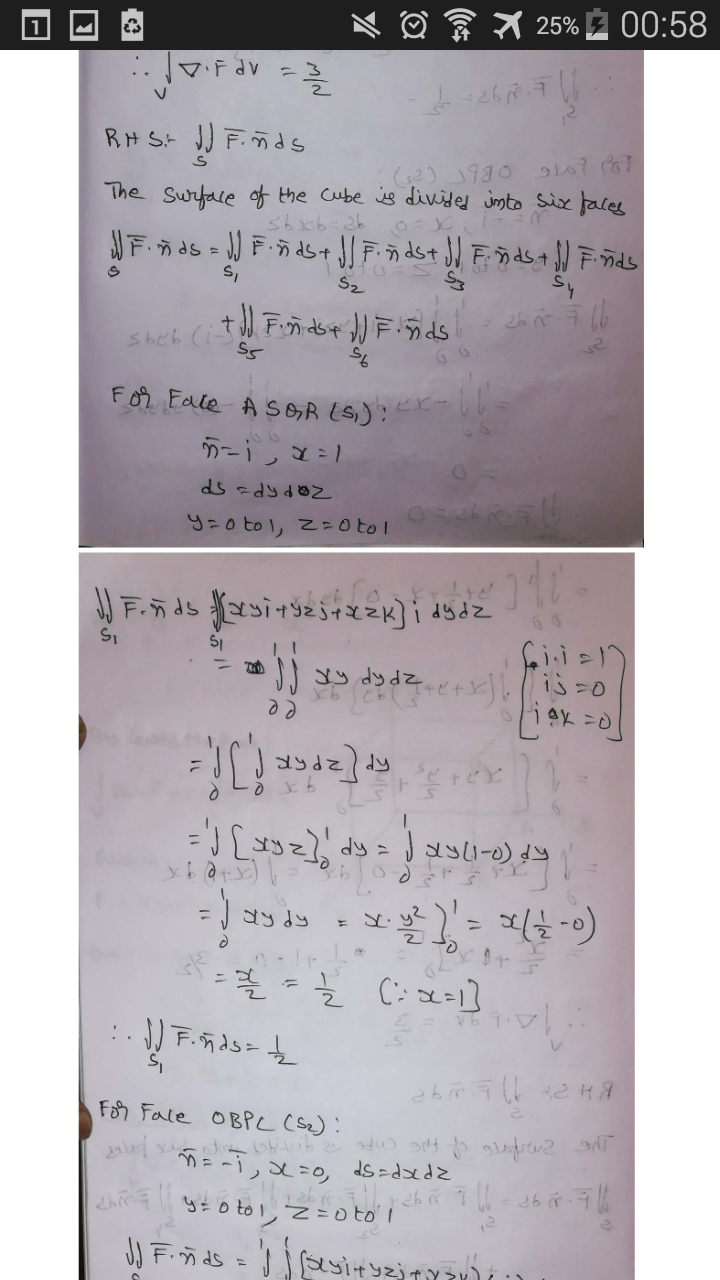 1 25% 00:58
∴ ∫_V ∇·F dV = 3/2
RHS:- ∬_S F̅·n̅ ds
The surface of the cube is divided into six faces
∬_S F̅·n̅ ds = ∬_S₁ F̅·n̅ ds + ∬_S₂ F̅·n̅ ds + ∬_S₃ F̅·n̅ ds + ∬_S₄ F̅·n̅ ds
+ ∬_S₅ F̅·n̅ ds + ∬_S₆ F̅·n̅ ds
For Face ASQR (S₁):
n̅ = i, x = 1
ds = dy dz
y = 0 to 1, z = 0 to 1
∬_S₁ F̅·n̅ ds = ∬_S₁ [xyi + yzj + xzk] i dydz
= ∫₀¹ ∫₀¹ xy dydz
[i.i = 1
ij = 0
i.k = 0]
= ∫₀¹ [∫₀¹ xy dz] dy
= ∫₀¹ [xyz]₀¹ dy = ∫₀¹ xy(1-0) dy
= ∫₀¹ xy dy = x·y²/2]₀¹ = x(1/2 - 0)
= x/2 = 1/2 [∵ x = 1]
∴ ∬_S₁ F̅·n̅ ds = 1/2
For Face OBPC (S₂):
n̅ = -i̅, x = 0, ds = dxdz
y = 0 to 1, z = 0 to 1
∬ F̅·n̅ ds = ∫¹ ∫¹ (xyi + yzj + xzk)